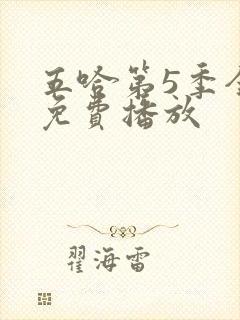 五哈第5季全
免費播放
翟海雷